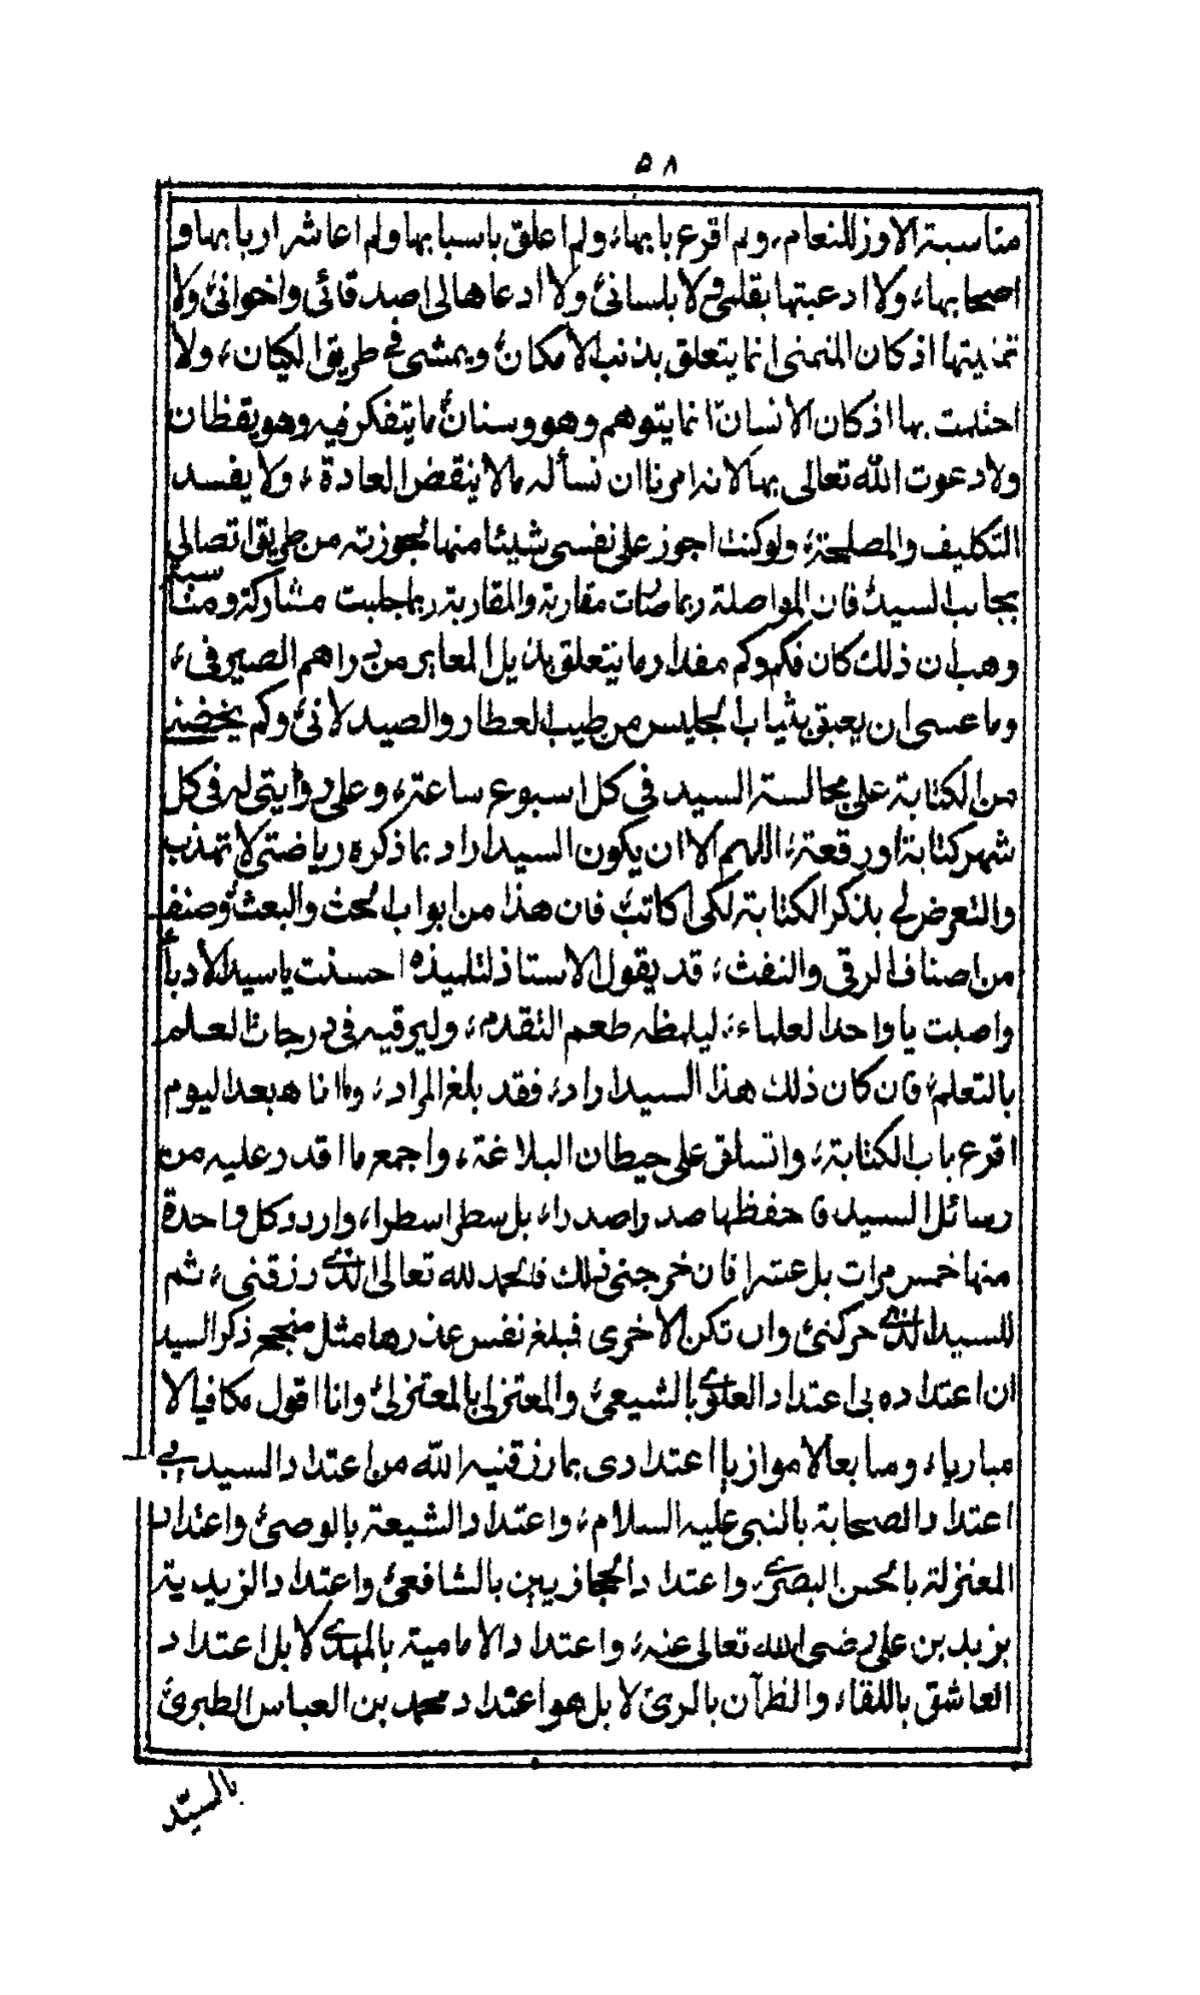 ٥٨
مناسبة الاوز للنعام، ولم اقرع بابها، ولم اعلق باسبابها ولم اعاشر اربابها و
اصحابها، ولا ادعيتها بقلبي لا بلساني، ولا ادعاها لى اصدقائى واخوانى، ولا
تمنيتها اذ كان المتمنى انما يتعلق بذنب الامكان، ويمشى فى طريق الكيان، ولا
احتلمت بها اذ كان الانسان انما يتوهم وهو وسنان، ما يتفكر فيه وهو يقظان
ولا دعوت الله تعالى بها لانه امرنا ان نسأله ما لا ينقض العادة، ولا يفسد
التكليف والمصلحة، ولو كنت اجوز على نفسى شيئا منها لجوزته من طريق اتصالي
بجانب السيد، فان المواصلة ربما صارت مقاربة والمقاربة ربما جلبت مشاركة ومناسبة
وهب ان ذلك كان فكم وكم مقدار ما يتعلق بذيل المعابر من دراهم الصيرفى،
وما عسى ان يعبق بثياب الجليس من طيب العطار والصيدلانى، وكم يخصنى
من الكتابة على مجالسة السيد فى كل اسبوع ساعة، وعلى روايتى له فى كل
شهر كتابة او رقعة، اللهم الا ان يكون السيد اراد بما ذكره رياضتى لاتهذب
والتعرض لى بذكر الكتابة لكى اكاتب، فان هذا من ابواب الحث والبعث، وصنف
من اصناف الرقى والنفث، قد يقول الاستاذ لتلميذه احسنت يا سيد الادباء
واصبت يا واحد العلماء، ليلمظه طعم التقدم، وليرقيه فى درجات العلم
بالتعلم، فان كان ذلك هذا السيد اراد، فقد بلغ المراد، وها انا هبعد اليوم
اقرع باب الكتابة، واتسلق على حيطان البلاغة، واجمع ما اقدر عليه من
رسائل السيد فاحفظها صدرا صدرا، بل سطرا سطرا، واردد كل واحدة
منها خمس مرات بل عشرا فان خرجنى ذلك فالحمد لله تعالى الذى رزقنى، ثم
للسيد الذى حركنى، وان تكن الاخرى فمبلغ نفس عذرها مثل منجح ذكر السيد
ان اعتداده بى اعتداد العلوى بالشيعى، والمعتزلى بالمعتزلى، وانا اقول مكافيا لا
مباريا، ومتابعا لا موازيا اعتدادى بما رزقنيه الله من اعتداد السيد بى
اعتداد الصحابة بالنبى عليه السلام، واعتداد الشيعة بالوصى، واعتداد
المعتزلة بالحسن البصرى، واعتداد الحجازيين بالشافعى، واعتداد الزيدية
بزيد بن على رضى الله تعالى عنه، واعتداد الامامية بالمهدى لا بل اعتداد
العاشق باللقاء، والظمآن بالرى، لا بل هو اعتداد محمد بن العباس الطبرى
بالسيد